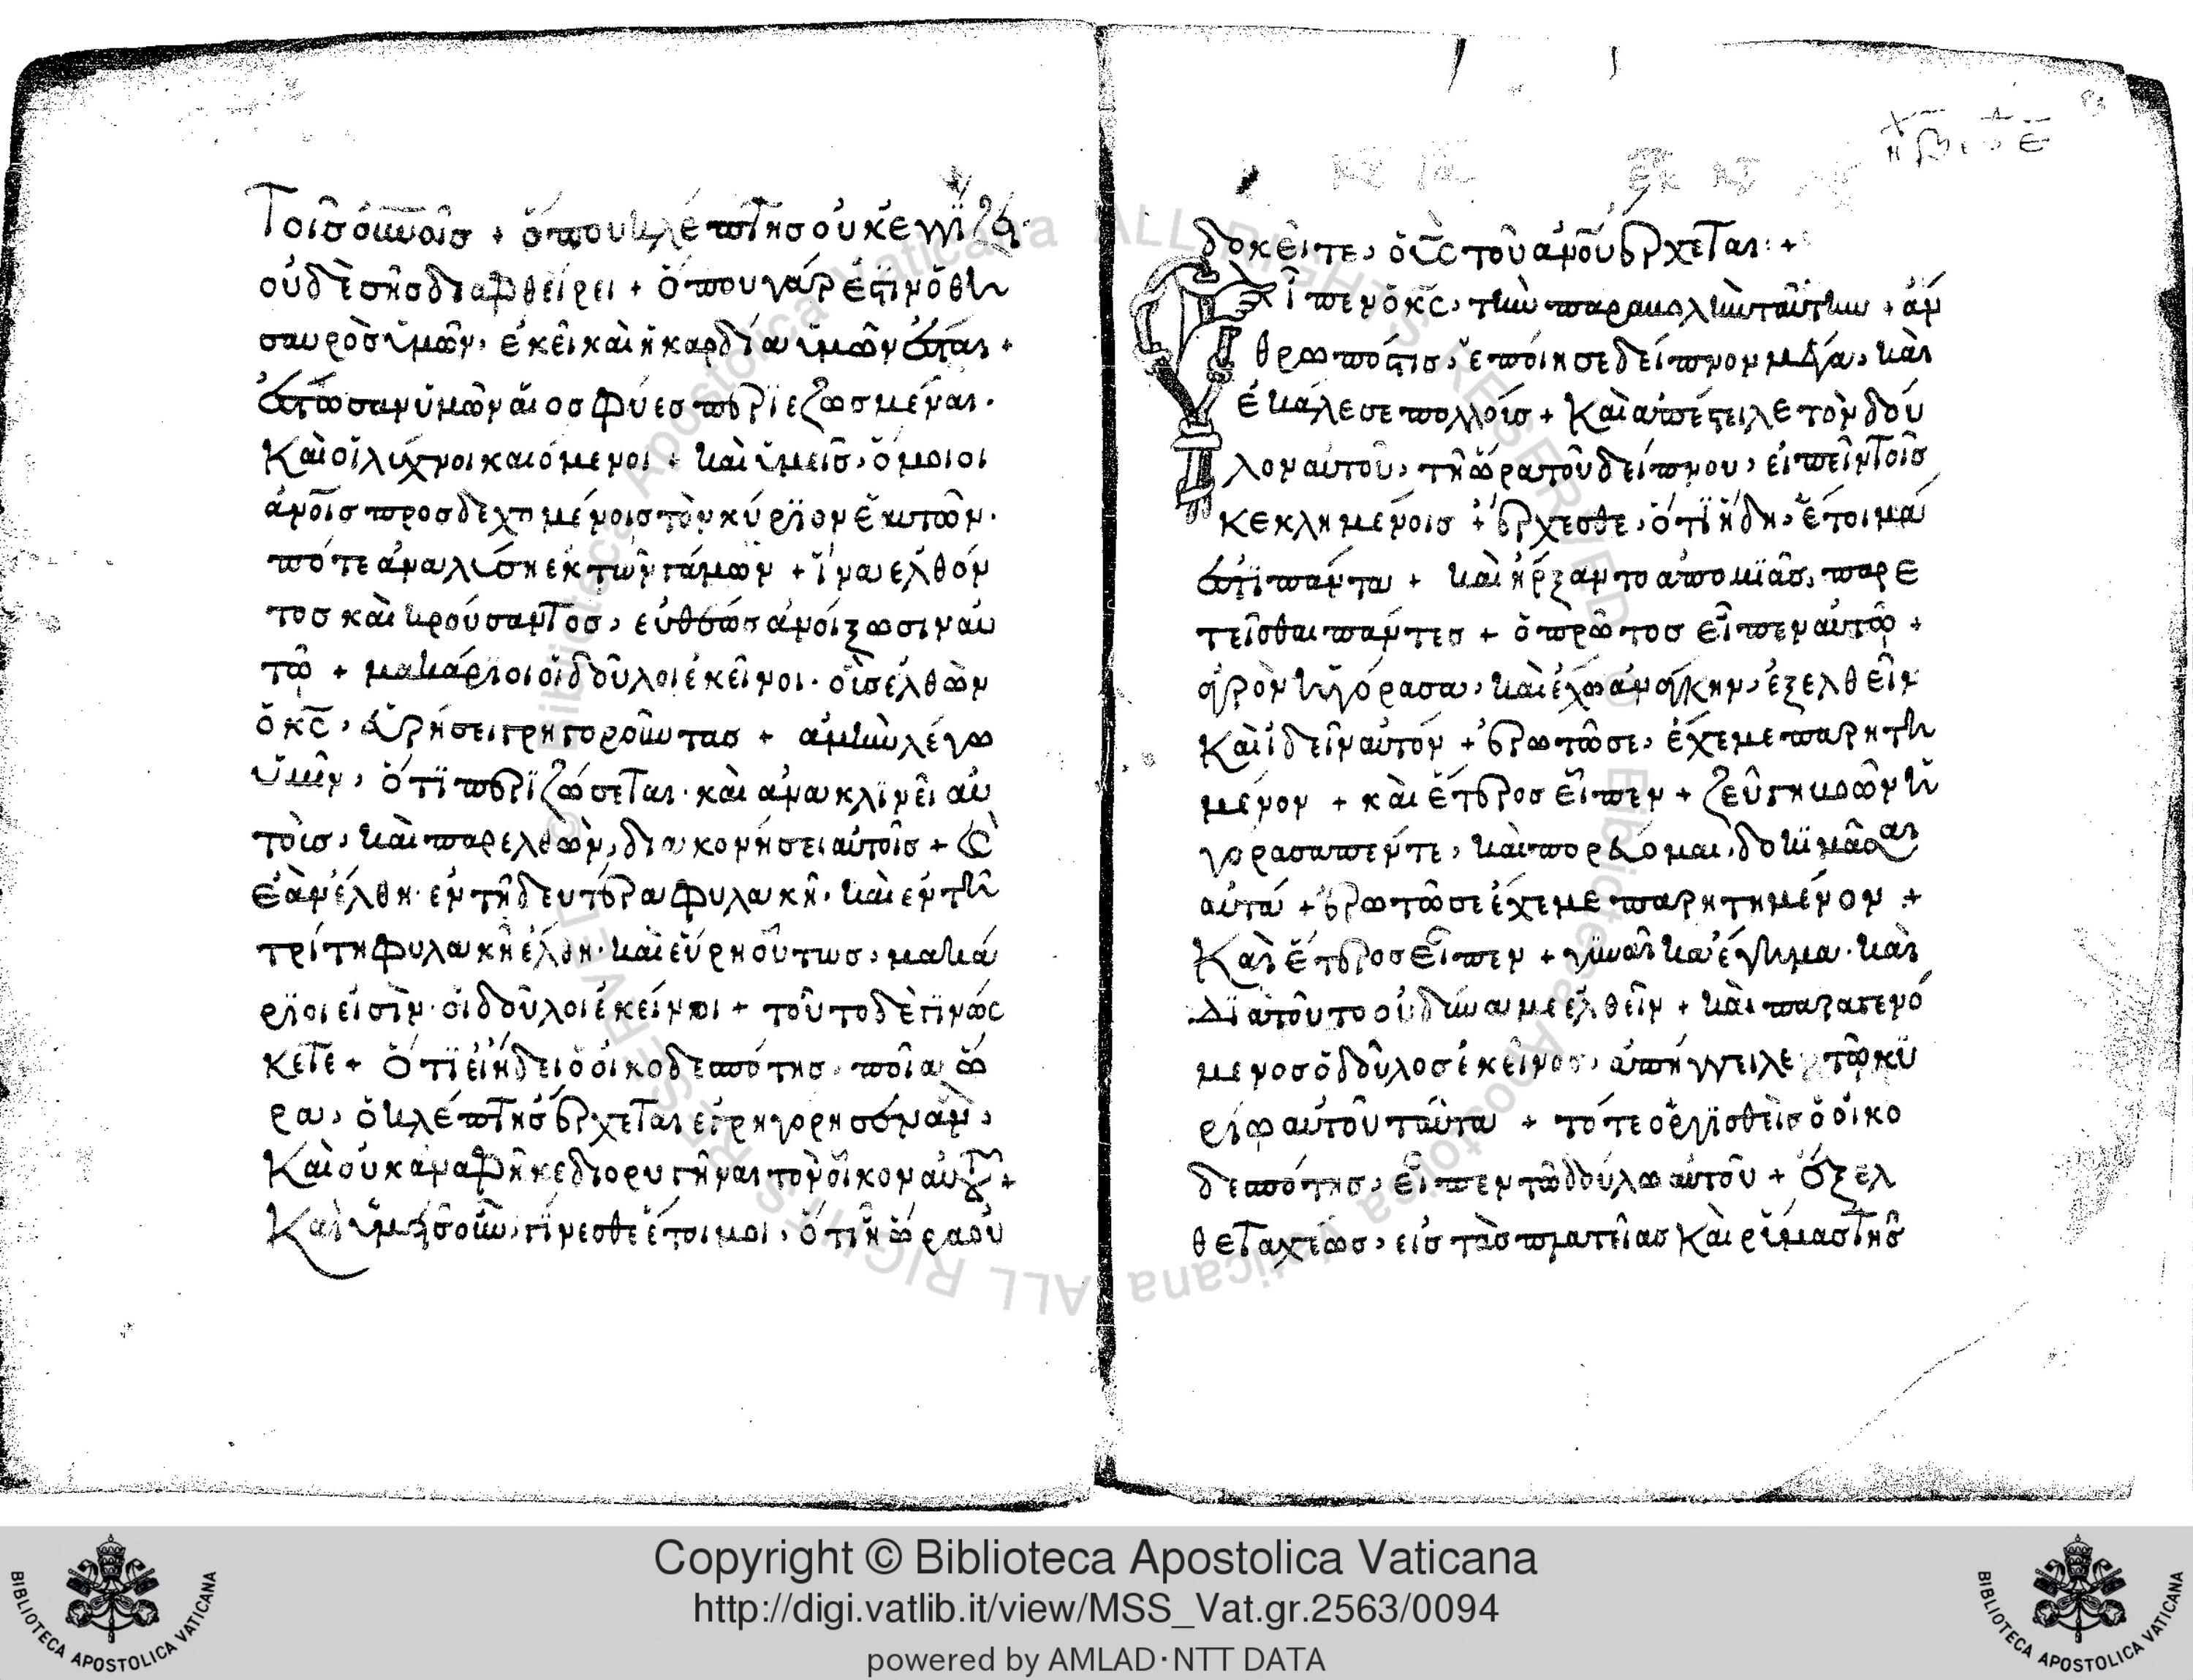 τοῖς οὐνοῖς + ὅπου κλέπτης οὐκ ἐγγίζει·
οὐδὲ σὴς διαφθείρει + ὅπου γάρ ἐστιν ὁ θη
σαυρὸς ὑμῶν, ἐκεῖ καὶ ἡ καρδία ὑμῶν ἔσται +
ἔστωσαν ὑμῶν αἱ οσφύες περιεζωσμέναι.
Καὶ οἱ λύχνοι καιόμενοι + καὶ ὑμεῖς, ὅμοιοι
ἀνοῖς προσδεχομένοις τὸν κύριον ἑαυτῶν.
πότε ἀναλύση ἐκ τῶν γάμων + ἵνα ελθόν
τος καὶ κρούσαντος, εὐθέως ἀνοίξωσιν αὐ
τῶ + μακάριοι οἱ δοῦλοι ἐκεῖνοι. οὓς ἐλθὼν
ὁ κς, εὑρήσει γρηγοροῦντας + ἀμὴν λέγω
ὑμῖν, ὅτι περιζώσεται. καὶ ἀνακλινεῖ αὐ
τοὺς, καὶ παρελθὼν, διακονήσει αὐτοῖς + καὶ
ἐὰν ἔλθη. ἐν τῆ δευτέρα φυλακῆ. καὶ ἐν τῆ
τρίτη φυλακῆ ἔλθη. καὶ εὕρη οὕτως, μακά
ριοι εἰσὶν. οἱ δοῦλοι ἐκείνοι + τοῦτο δὲ γινώσ
κετε + ὅτι εἰ ἤδει ὁ οἰκοδεσπότης. ποία ὥ
ρα, ὁ κλέπτης ἔρχεται ἐγρηγόρησεν ἀν,
Καὶ οὐκ ἀν αφῆκε διορυγῆναι τὸν οἶκον αὐτοῦ +
Καὶ ὑμεῖς οὖν, γίνεσθε ἕτοιμοι, ὅτι ἧ ὥρα οὐ
δοκεῖτε, ὁ ὑς τοῦ ἀνοῦ ἔρχεται: +
Εἶπεν ὁ κς, τὴν παραβολὴν ταύτην, ἄν
θρωπός τις, ἐποίησε δείπνον μέγα, καὶ
ἐκάλεσε πολλούς + Καὶ ἀπέστειλε τὸν δοῦ
λον αὐτοῦ, τῆ ὥρα τοῦ δείπνου, εἰπεῖν τοῖς
κεκλημένοις + ἔρχεσθε, ὅτι ἤδη, ἕτοιμά
ἐστι πάντα + καὶ ἤρξαντο ἀπο μιᾶς, παρε
τεῖσθαι πάντες + ὁ πρῶτος εἶπεν αὐτῶ +
ἀγρὸν ἠγόρασα, καὶ ἔχω ἀνάγκην, ἐξελθεῖν
Καὶ ἰδεῖν αὐτόν + ἐρωτῶ σε, ἔχε με παρητη
μένον + καὶ ἕτερος εἶπεν + ζεύγη βοῶν ἠ
γόρασα πέντε, καὶ πορεύομαι, δοκιμᾶσαι
αὐτά + ἐρωτῶ σε ἔχε με παρητημένον +
Καὶ ἕτερος εἶπεν + γυναῖκα ἔγημα. καὶ
διατοῦτο οὐ δύναμε ἐλθεῖν + καὶ παραγενό
μενος ὁ δοῦλος ἐκεῖνος, ἀπήγγειλε τῶ κυ
ρίω αὐτοῦ ταῦτα + τότε οργισθεὶς ὁ οἰκο
δεσπότης, εἶπεν τῶ δούλω αὐτοῦ + ἔξελ
θε ταχέως, εἰς τὰς πλατείας Καὶ ρύμας τῆς
Copyright © Biblioteca Apostolica Vaticana
http://digi.vatlib.it/view/MSS_Vat.gr.2563/0094
powered by AMLAD·NTT DATA